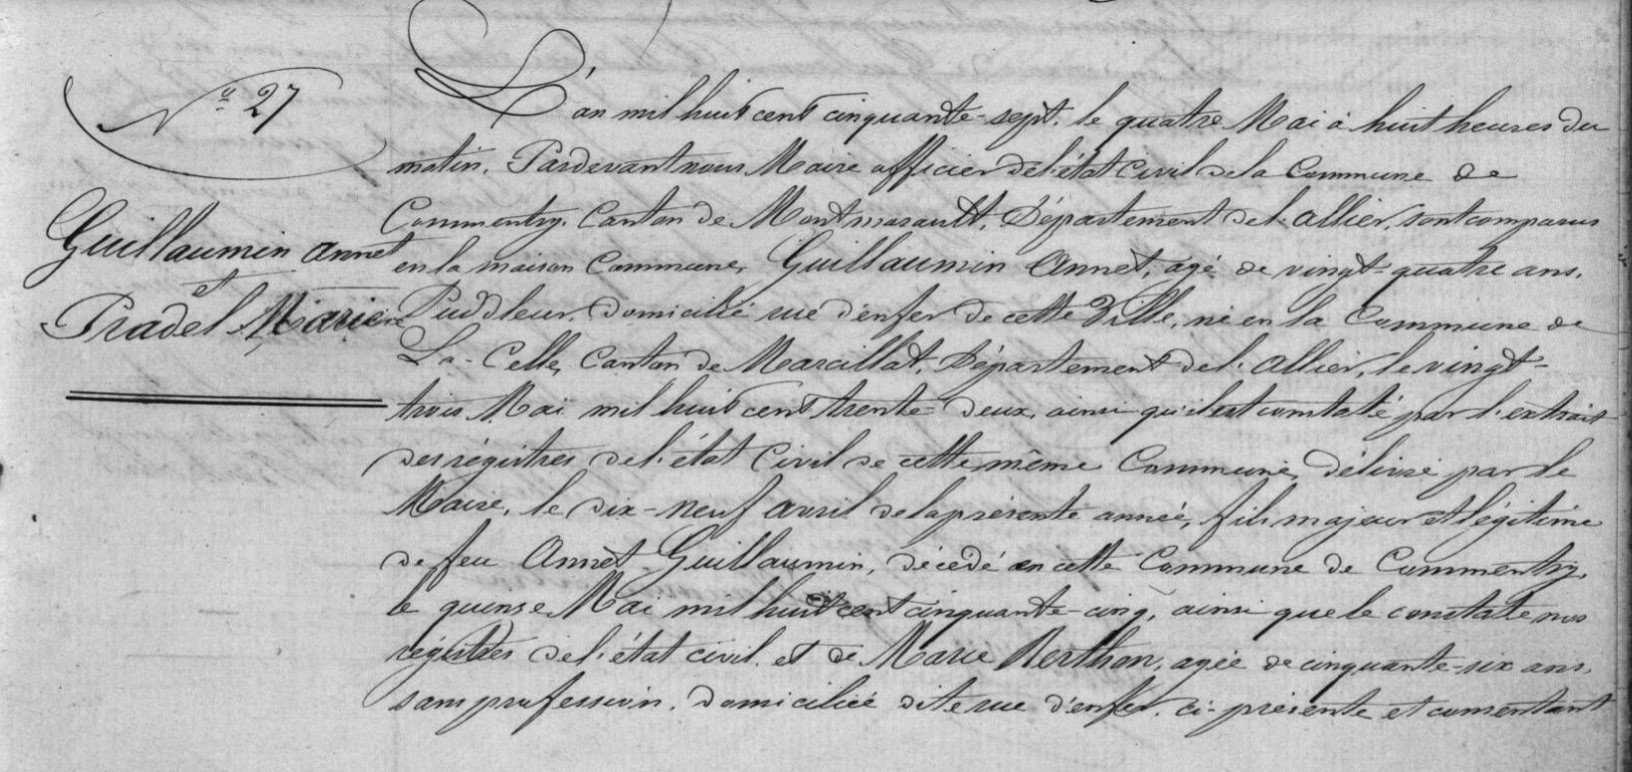 No 27
Guillaumin Annet
et
Pradel Marie
L'an mil huit cent cinquante-sept, le quatre Mai à huit heures du
matin, Pardevant nous Maire officier de l'état civil de la Commune de
Commentry, Canton de Montmarault, Département de l'Allier, sont comparus
en la maison Commune, Guillaumin Annet, agé de vingt-quatre ans,
Puddleur, domicilié rue d'enfer de cette Ville, né en la Commune de
La-Celle, Canton de Marcillat, Département de l'Allier, le vingt-
trois Mai mil huit cent trente-deux, ainsi qu'il est constaté par l'extrait
des régistres de l'état Civil de cette même Commune, délivré par le
Maire, le dix-neuf avril de la présente année, fils majeur et légitime
de feu Annet Guillaumin, décédé en cette Commune de Commentry,
le quinse Mai mil huit cent cinquante-cinq, ainsi que le constate nos
régistres de l'état civil, et de Marie Berthon, agée de cinquante-six ans,
sans profession, domiciliée dite rue d'enfer, ci-présente et consentant